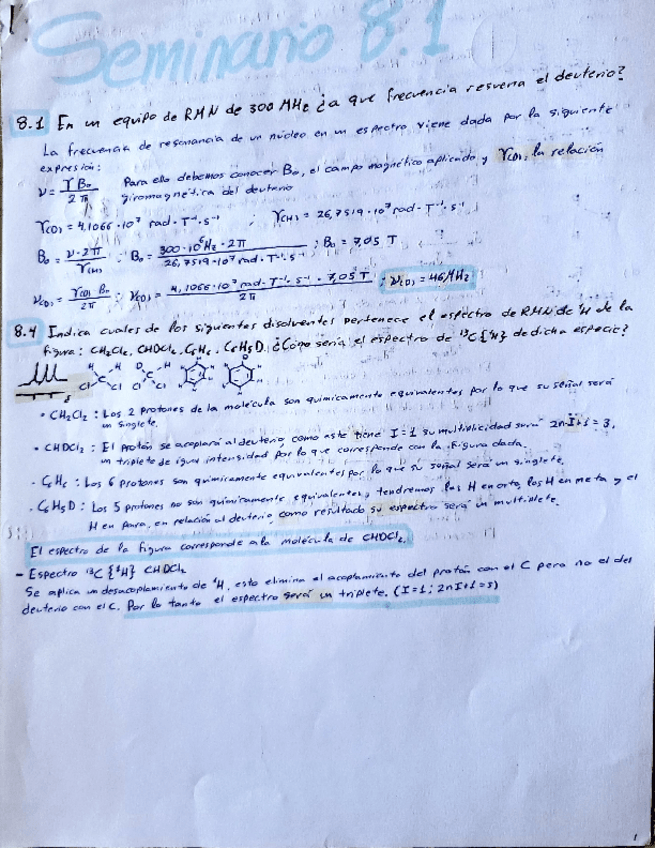 Seminario 8.1
8.1 En un equipo de RMN de 300 MHz ¿a que frecuencia resuena el deuterio?
La frecuencia de resonancia de un núcleo en un espectro viene dada por la siguiente
expresión:
ν = γ B₀ / 2π Para ello debemos conocer B₀, el campo magnético aplicado y γ(D), la relación
giromagnética del deuterio
γ(D) = 4,1066·10⁷ rad·T⁻¹·s⁻¹ ; γ(H) = 26,7519·10⁷ rad·T⁻¹·s⁻¹
B₀ = ν·2π / γ(H) ; B₀ = 300·10⁶ Hz · 2π / 26,7519·10⁷ rad·T⁻¹·s⁻¹ ; B₀ = 7,05 T
ν(D) = γ(D) B₀ / 2π ; ν(D) = 4,1066·10⁷ rad·T⁻¹·s⁻¹ · 7,05 T / 2π ; ν(D) = 46 MHz
8.4 Indica cuales de los siguientes disolventes pertenece el espectro de RMN de ¹H de la
figura: CH₂Cl₂, CHDCl₂, C₆H₆, C₆H₅D. ¿Cómo sería el espectro de ¹³C{¹H} de dicha especie?
H H D H D
Cl C Cl Cl C Cl
δ
• CH₂Cl₂ : Los 2 protones de la molécula son químicamente equivalentes por lo que su señal será
un singlete.
• CHDCl₂ : El protón se acoplará al deuterio, como este tiene I=1 su multiplicidad será 2nI+1 = 3,
un triplete de igual intensidad por lo que corresponde con la figura dada.
· C₆H₆ : Los 6 protones son químicamente equivalentes por lo que su señal será un singlete.
· C₆H₅D : Los 5 protones no son químicamente equivalentes, tendremos los H en orto, los H en meta y el
H en para, en relación al deuterio, como resultado su espectro será un multiplete.
El espectro de la figura corresponde a la molécula de CHDCl₂.
- Espectro ¹³C {¹H} CHDCl₂
Se aplica un desacoplamiento de ¹H, esto elimina el acoplamiento del protón con el C pero no el del
deuterio con el C. Por lo tanto el espectro será un triplete. (I=1 ; 2nI+1=3)
1